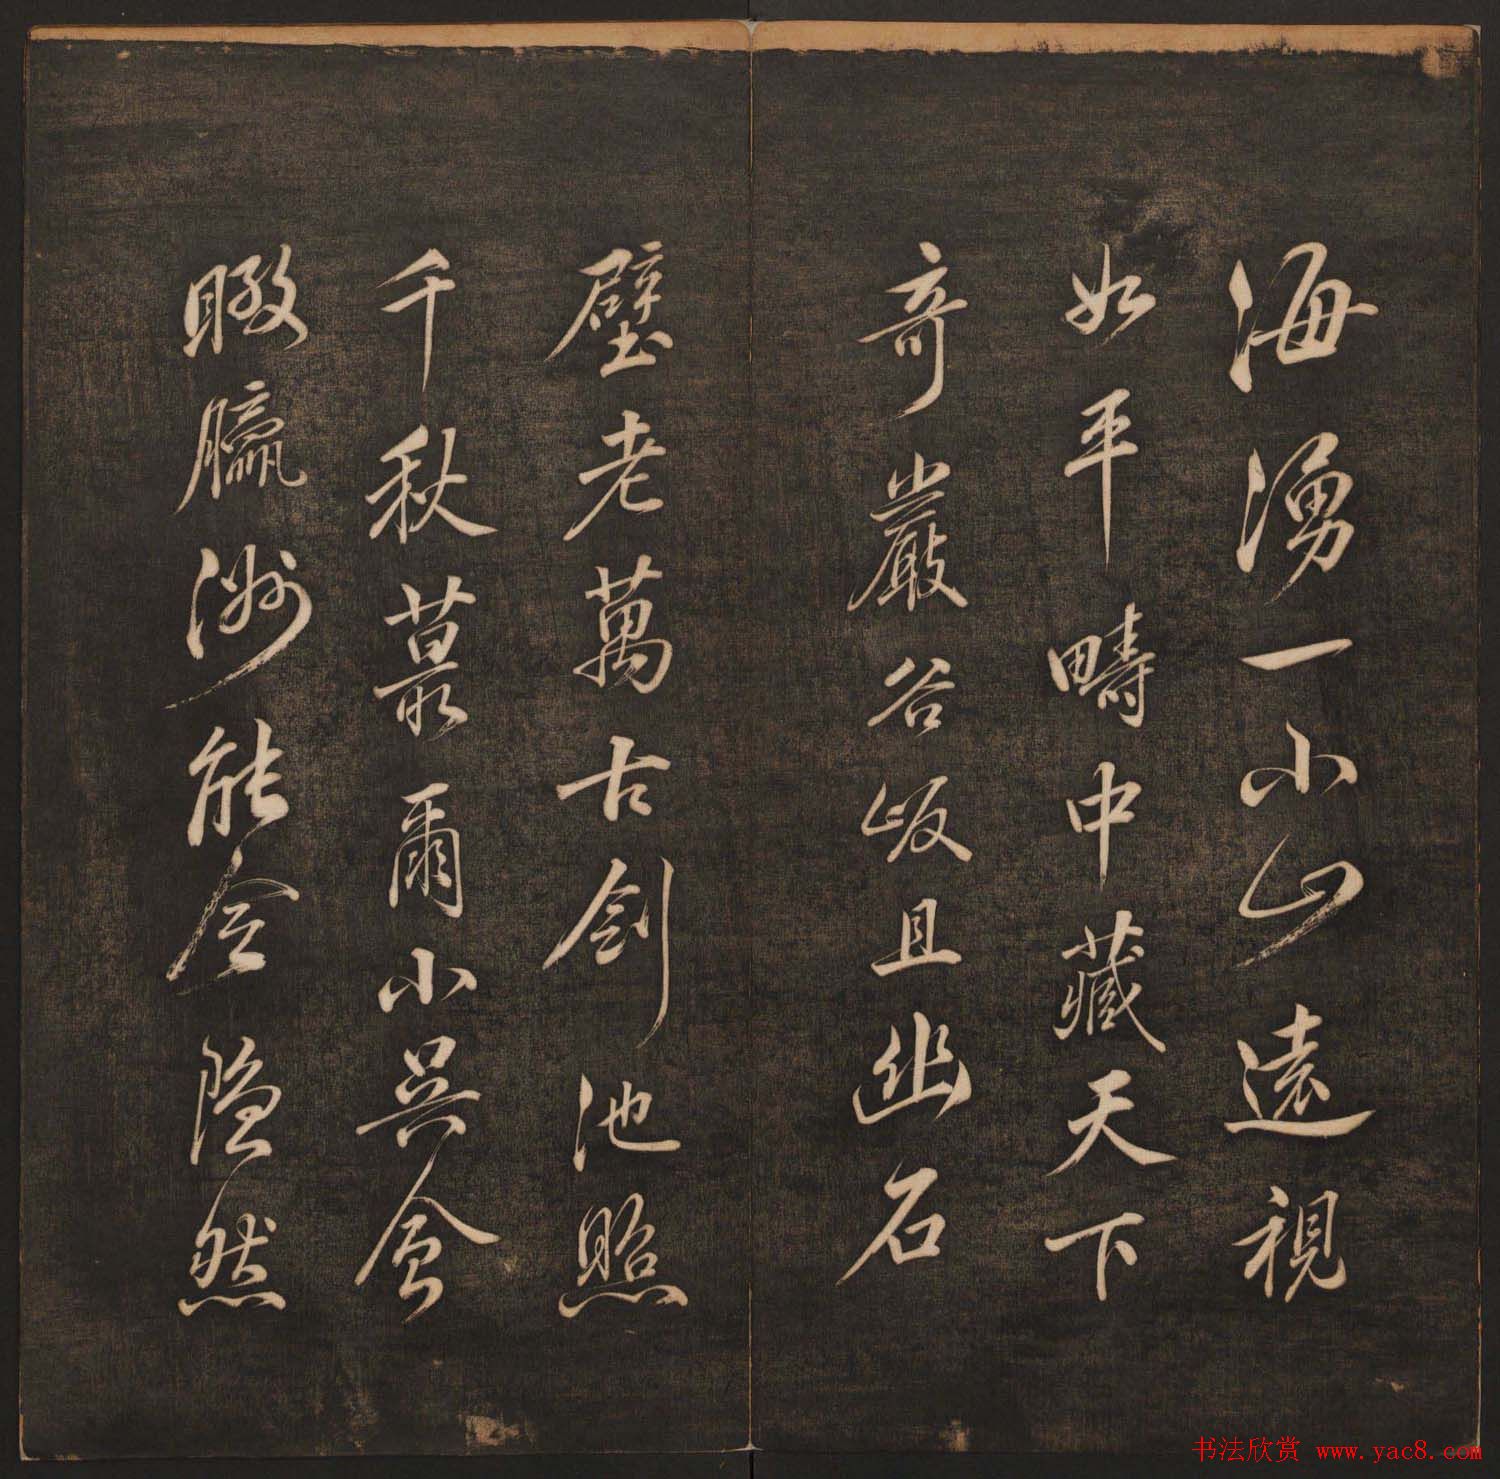 海湧一小山遠視
如平疇中藏天下
奇巖谷岅且幽石
壁老萬古劍池照
千秋蕞爾小吳會
瞰瀛洲能令隱然
书法欣赏 www.yac8.com